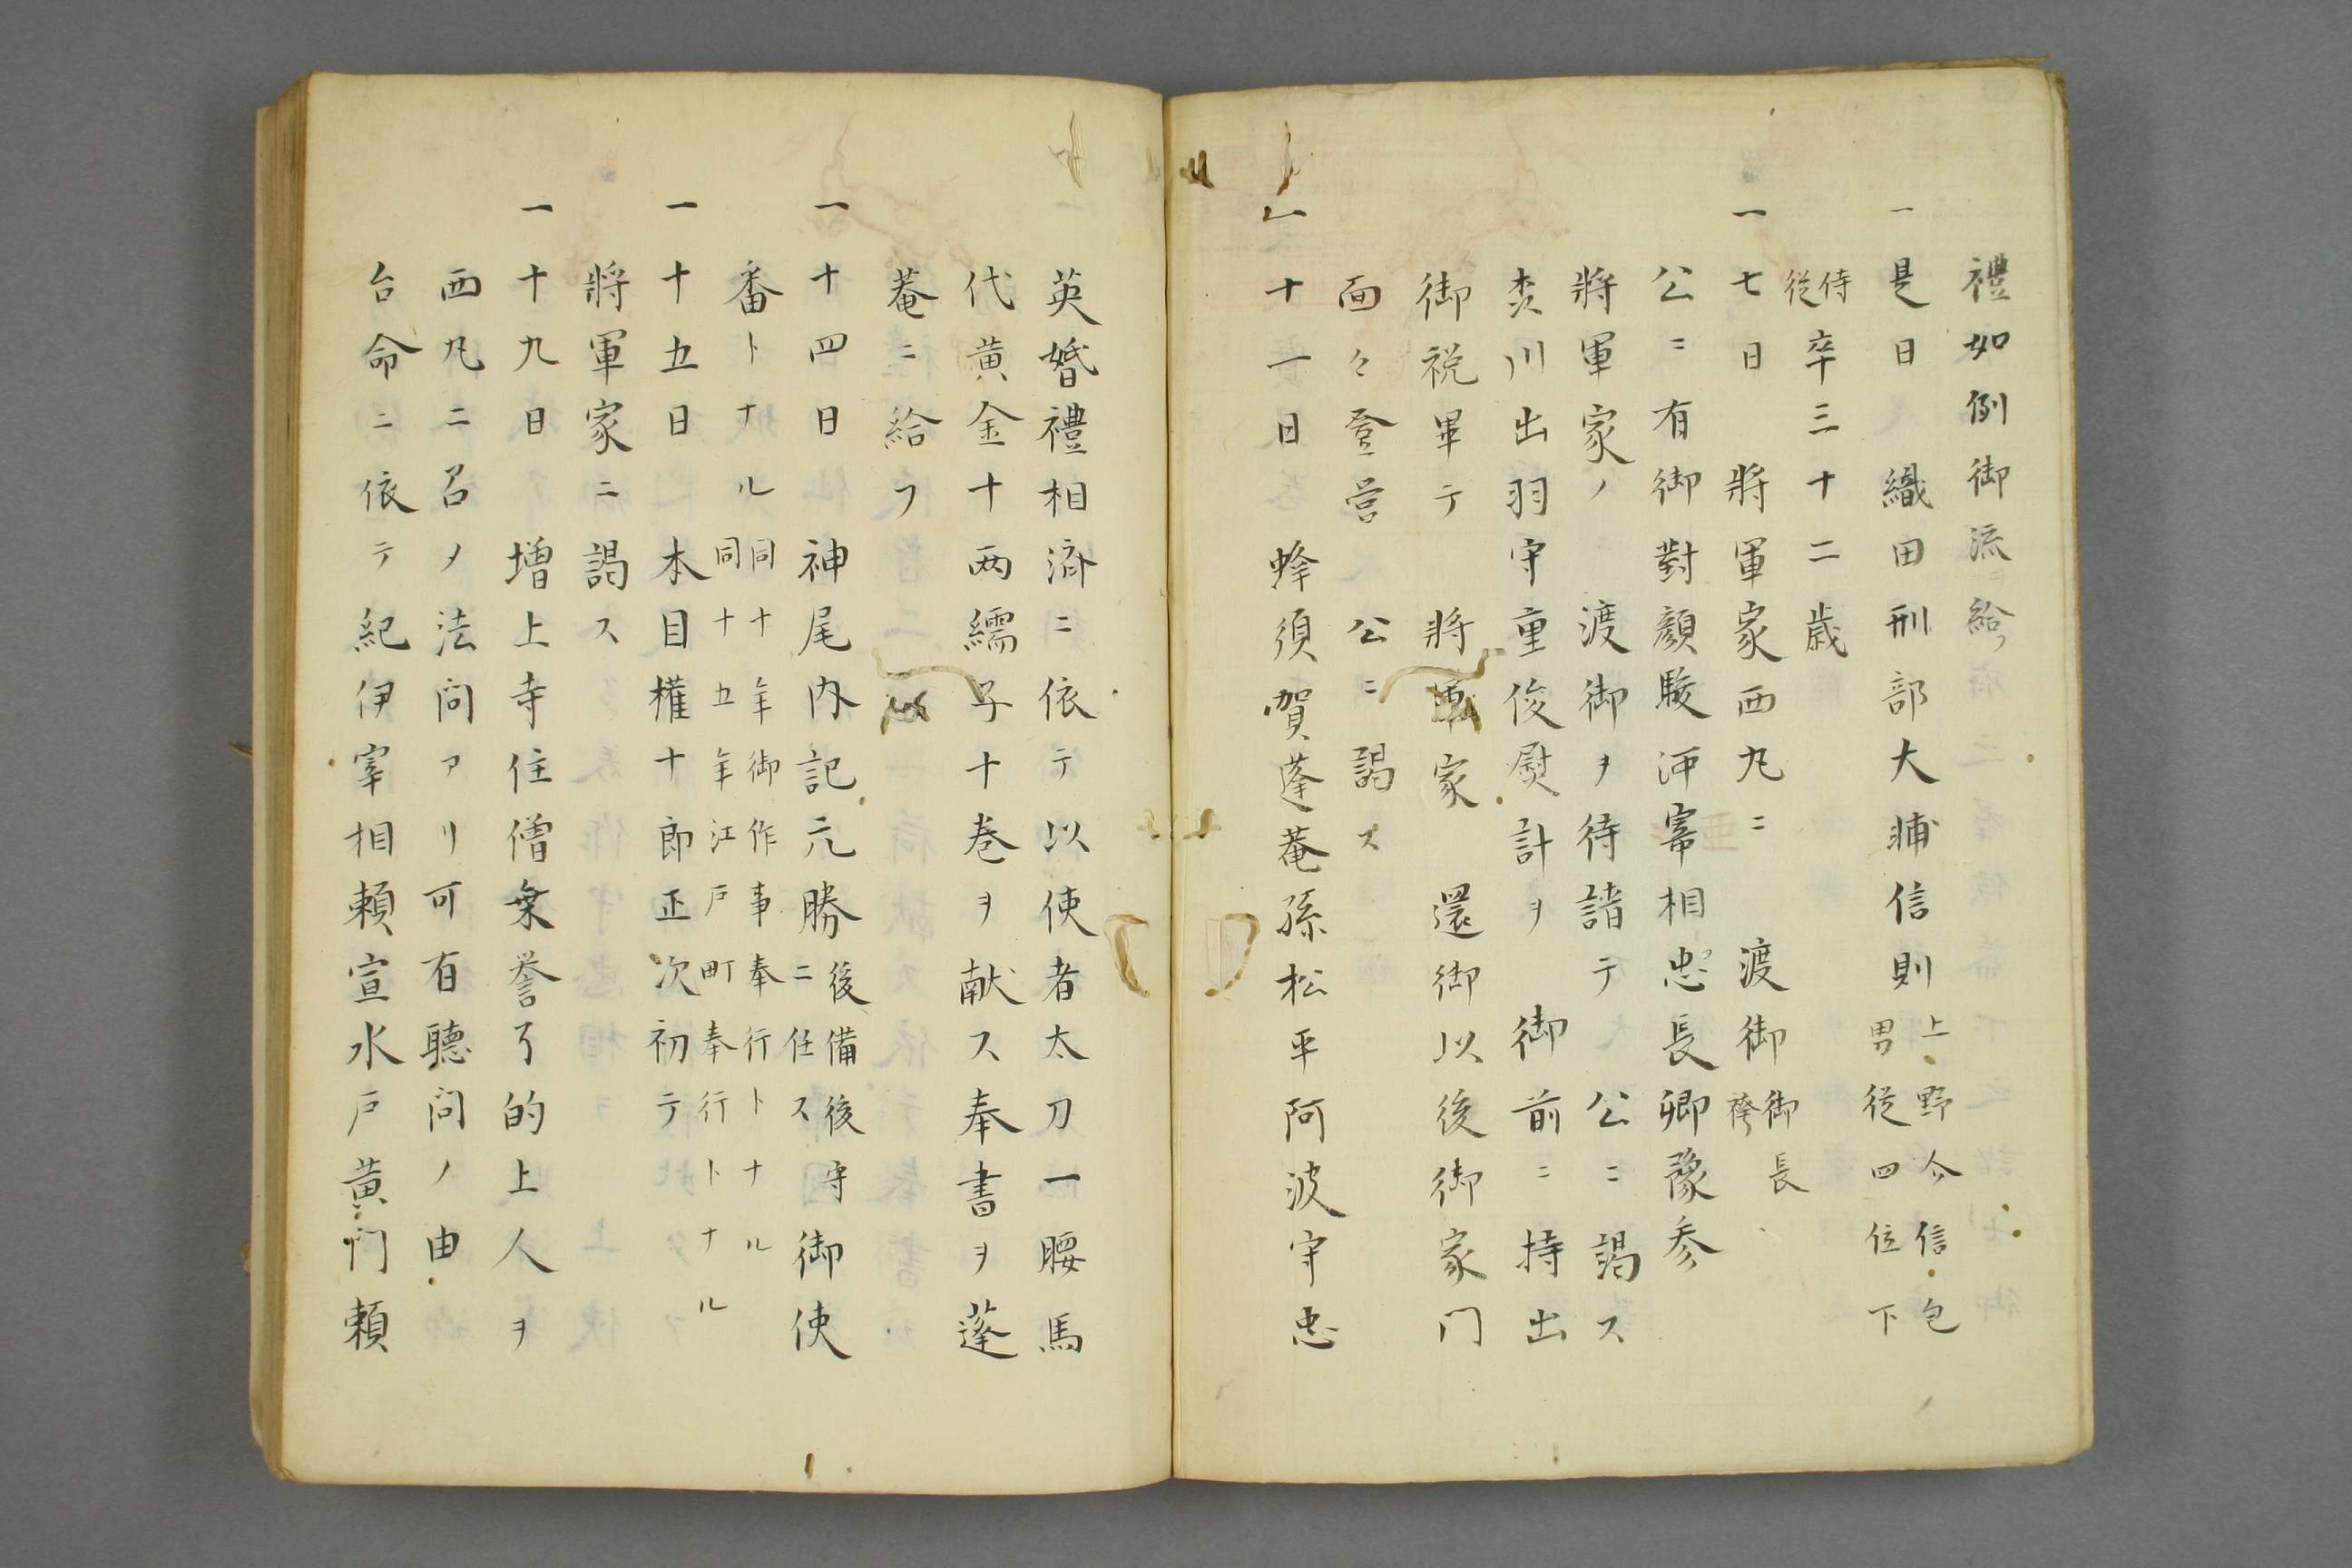 禮如例御流ヲ給フ
一是日 織田刑部大輔信則上野介信包男従四位下
侍従卒三十二歳
一七日 將軍家西丸ニ 渡御御長袴
公ニ有御對顔駿河宰相忠長卿豫参
將軍家ノ 渡御ヲ待請テ 公ニ謁ス
森川出羽守重俊熨計ヲ 御前ニ持出
御祝畢テ 將軍家 還御以後御家門
面々登営 公ニ謁ス
一十一日 蜂須賀蓬菴孫松平阿波守忠
英婚禮相済ニ依テ以使者太刀一腰馬
代黄金十两繻子十巻ヲ献ス奉書ヲ蓬
菴ニ給フ
一十四日 神尾内記元勝後備後守ニ任ス御使
番トナル同十年御作事奉行トナル同十五年江戸町奉行トナル
一十五日 本目権十郎正次初テ
將軍家ニ謁ス
一十九日 増上寺住僧業誉了的上人ヲ
西丸ニ召ノ法問アリ可有聴問ノ由
台命ニ依テ紀伊宰相頼宣水戸黄門頼